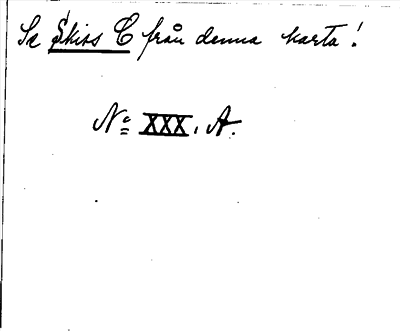 Se Skiss C från denna karta!
No XXX. A.